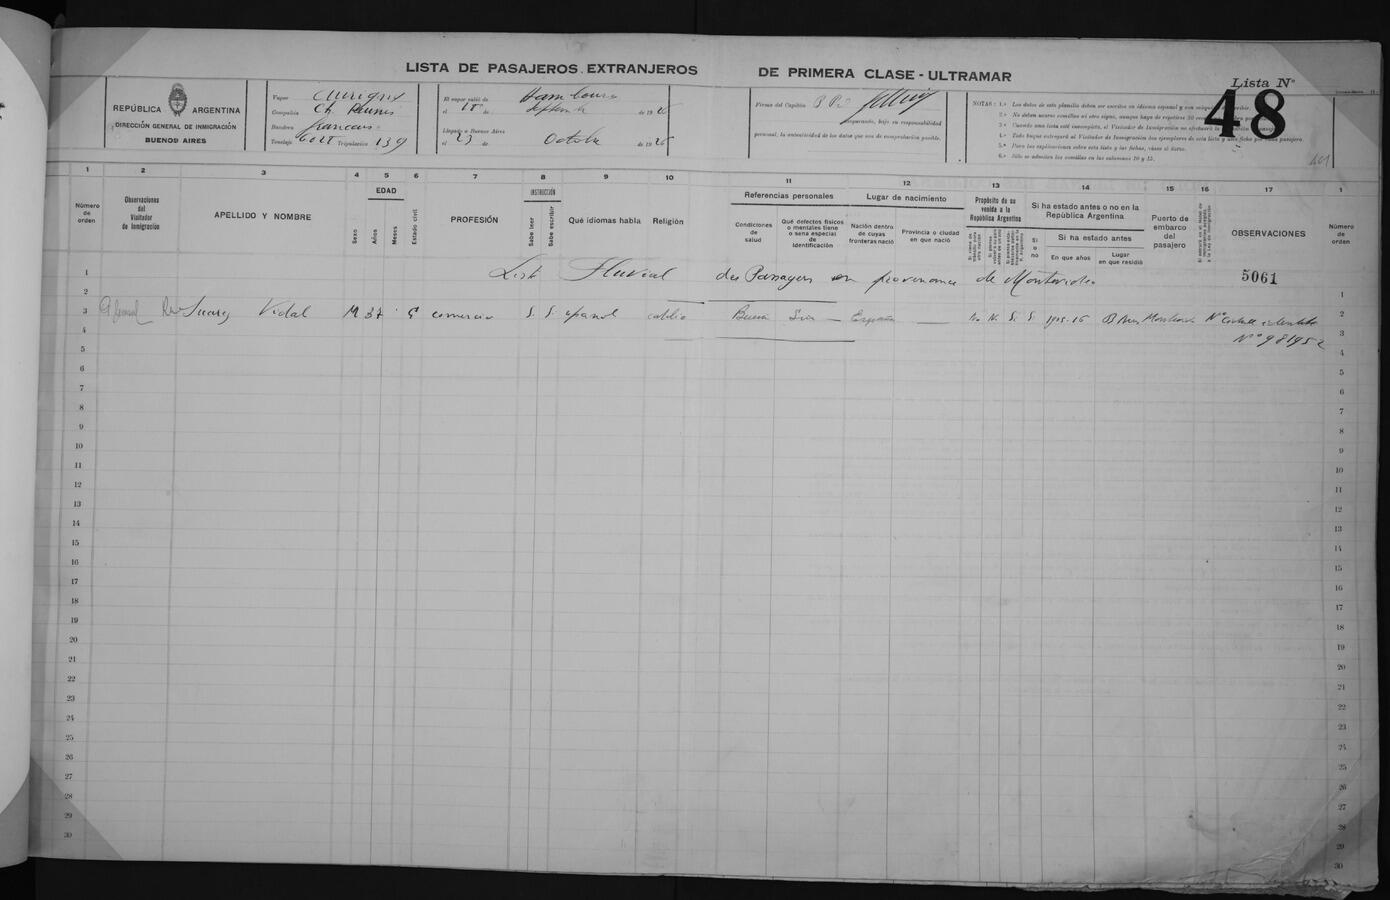 LISTA DE PASAJEROS EXTRANJEROS DE PRIMERA CLASE - ULTRAMAR
Lista Nº
48
REPÚBLICA ARGENTINA
DIRECCIÓN GENERAL DE INMIGRACIÓN
BUENOS AIRES
Vapor Aurigny
Compañía Ch. Réunis
Bandera
Tonelaje Tripulantes 139
El vapor salió de Hambourg
el de Septembre de 1926
Llegado a Buenos Aires
el 23 de Octobre de 1926
Firma del Capitán
asegurando, bajo su responsabilidad
personal, la autenticidad de los datos que son de comprobación posible.
NOTAS: 1.ª Los datos de esta planilla deben ser escritos en idioma español
2.ª No deben usarse comillas ni otro signo
3.ª Cuando una lista esté incompleta, el Visitador de Inmigración no efectuará
4.ª Todo buque entregará al Visitador de Inmigración dos ejemplares de esta lista y una ficha por cada pasajero.
5.ª Para las explicaciones sobre esta lista y las fichas, véase al dorso.
6.ª Sólo se admiten las comillas en las columnas 10 y 15.
1 2 3 4 5 6 7 8 9 10 11 12 13 14 15 16 17 1
Número de orden
Observaciones del Visitador de Inmigración
APELLIDO Y NOMBRE
Sexo
EDAD
Años
Meses
Estado civil
PROFESIÓN
INSTRUCCIÓN
Sabe leer
Sabe escribir
Qué idiomas habla
Religión
Referencias personales
Condiciones de salud
Qué defectos físicos o mentales tiene o sena especial de identificación
Lugar de nacimiento
Nación dentro de cuyas fronteras nació
Provincia o ciudad en que nació
Propósito de su venida a la República Argentina
Si ha estado antes o no en la República Argentina
Si o no
Si ha estado antes
En que años
Lugar en que residió
Puerto de embarco del pasajero
OBSERVACIONES
Número de orden
List Fluvial des Passagers en provenance de Montevideo
5061
Suarez Vidal M 37 C comercio S. S. español Buena Sin — España — No N. S. S. 1905-16 B Aires Montevideo
Nº 981952
1
2
3
4
5
6
7
8
9
10
11
12
13
14
15
16
17
18
19
20
21
22
23
24
25
26
27
28
29
30
1
2
3
4
5
6
7
8
9
10
11
12
13
14
15
16
17
18
19
20
21
22
23
24
25
26
27
28
29
30